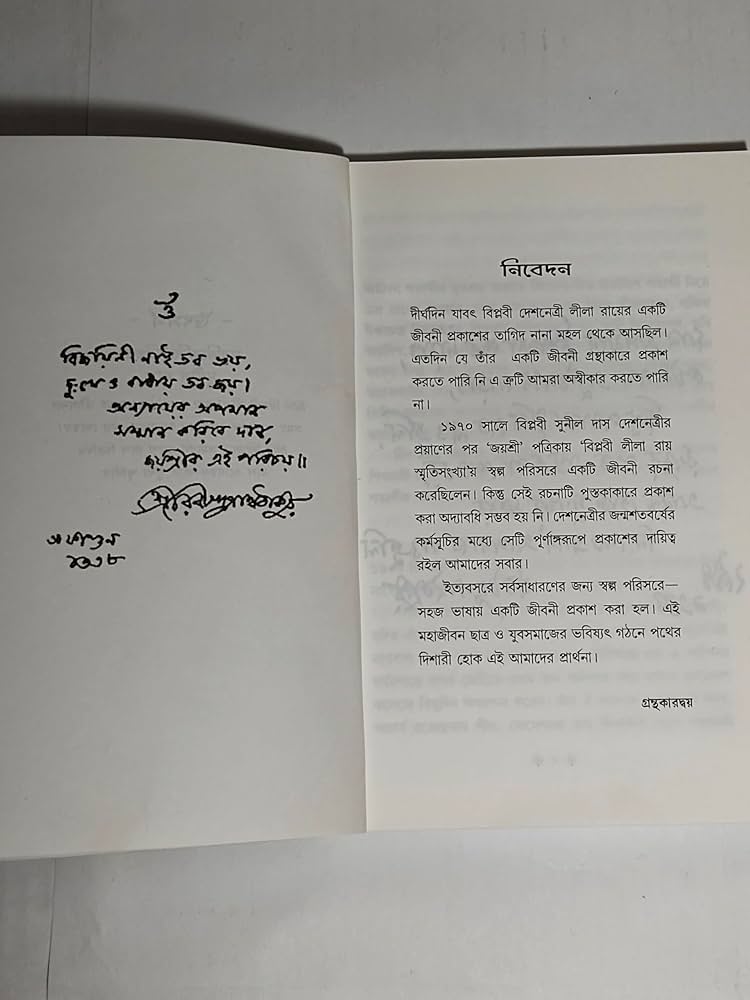 ওঁ
বিজয়িনী নাই তব ভয়,
দুঃখে ও বাধায় তব জয়।
অন্যায়ের অপমান
সম্মান করিবে দান,
জয়শ্রীর এই পরিচয়॥
শ্রীরবীন্দ্রনাথ ঠাকুর
ফাল্গুন
১৩৩৮
নিবেদন
দীর্ঘদিন যাবৎ বিপ্লবী দেশনেত্রী লীলা রায়ের একটি
জীবনী প্রকাশের তাগিদ নানা মহল থেকে আসছিল।
এতদিন যে তাঁর একটি জীবনী গ্রন্থাকারে প্রকাশ
করতে পারি নি এ ত্রুটি আমরা অস্বীকার করতে পারি
না।
১৯৭০ সালে বিপ্লবী সুনীল দাস দেশনেত্রীর
প্রয়াণের পর ‘জয়শ্রী’ পত্রিকায় ‘বিপ্লবী লীলা রায়
স্মৃতিসংখ্যা’য় স্বল্প পরিসরে একটি জীবনী রচনা
করেছিলেন। কিন্তু সেই রচনাটি পুস্তকাকারে প্রকাশ
করা অদ্যাবধি সম্ভব হয় নি। দেশনেত্রীর জন্মশতবর্ষের
কর্মসূচির মধ্যে সেটি পূর্ণাঙ্গরূপে প্রকাশের দায়িত্ব
রইল আমাদের সবার।
ইত্যবসরে সর্বসাধারণের জন্য স্বল্প পরিসরে—
সহজ ভাষায় একটি জীবনী প্রকাশ করা হল। এই
মহাজীবন ছাত্র ও যুবসমাজের ভবিষ্যৎ গঠনে পথের
দিশারী হোক এই আমাদের প্রার্থনা।
গ্রন্থকারদ্বয়